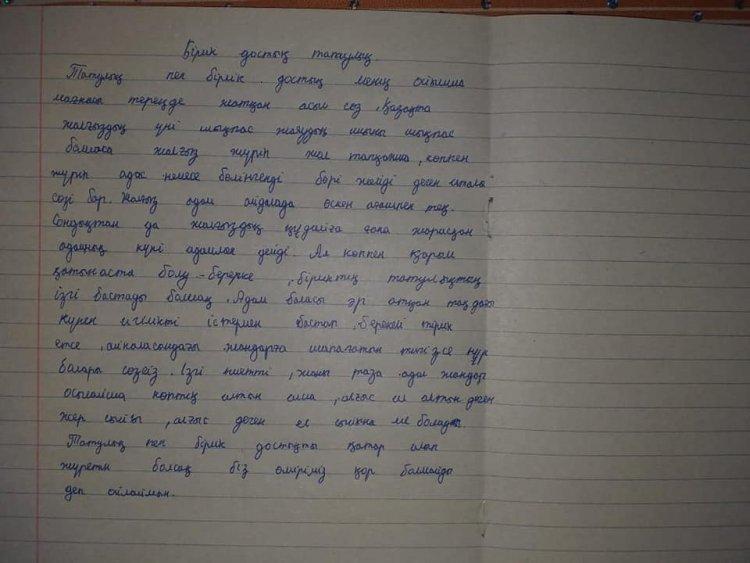 Бірлік достық татулық.
Татулық пен бірлік . достық менің ойымша
мағнасы тереңде жатқан асыл сөз . Қазақта
жалғыздың үні шықпас жаяудың шаңы шықпас
болмаса жалғыз жүріп жол тапқанша , көппен
жүріп адас немесе бөлінгенді бөрі жейді деген
сөзі бар. Жалғыз адам айдалада өскен ағашпен тең.
Сондықтан да жалғыздық құдайға ғана жарасқан
адамның күні адамлек дейді. Ал көппен қарым
қатынаста болу - береке , бірліктің татулықтың
ізгі бастады болмақ . Адам баласы әр атқан таңдағы
күнен игілікті істермен бастап , берекелі тірлік
етсе , айналасындағы жандарға шапағатын тигізсе нұр
болары сөзсіз . Ізгі ниетті , жаны таза адал жандар
осылайша көптің алтын алма , алғыс ал алтын деген
жер сыйы , алғыс деген ел сыйына ие болады.
Татулық пен бірлік достықты қатар алып
жүретін болсақ біз өміріміз қор болмайды
деп ойлаймын.